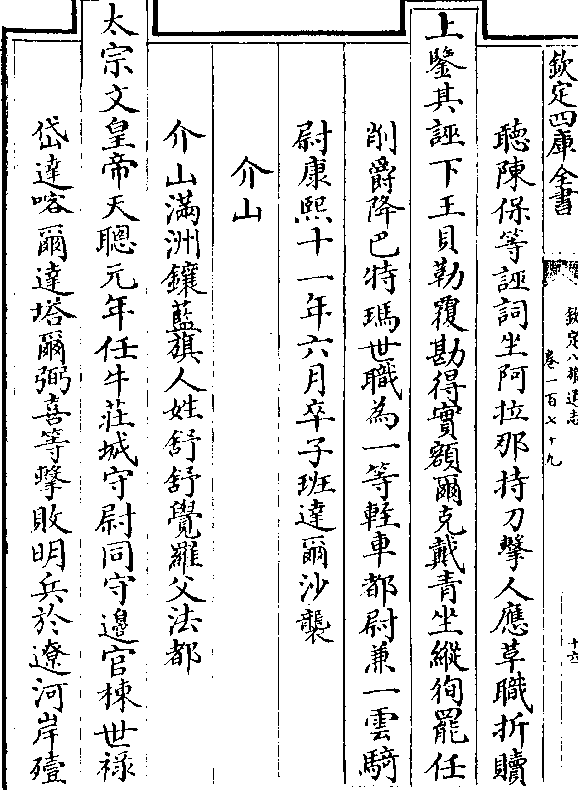 欽定四庫全書
欽定八旗通志
卷一百七十九
十六
聽陳保等誣詞坐阿拉那持刀擊人應革職折贖
上鑒其誣下王貝勒覆勘得實額爾克戴青坐縱徇罷任
削爵降巴特瑪世職為一等輕車都尉兼一雲騎
尉康熙十一年六月卒子班達爾沙襲
介山
介山滿洲鑲藍旗人姓舒舒覺羅父法都
太宗文皇帝天聰元年任牛莊城守尉同守邊官棟世祿
岱達喀爾達塔爾弼喜等擊敗明兵於遼河岸殪